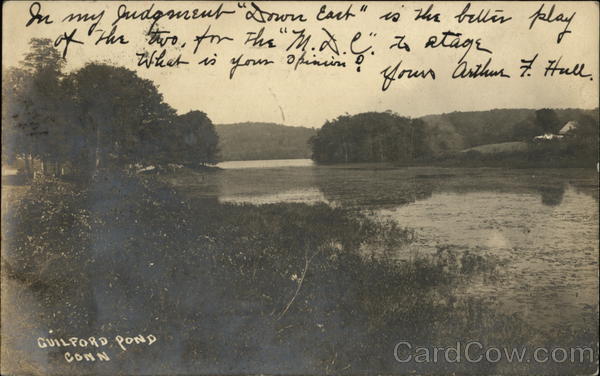 In my Judgment "Down East" is the better play
of the two, for the "M. D. C." to stage
What is your opinion?
Yours Arthur F. Hull.
GUILFORD POND
CONN
CardCow.com